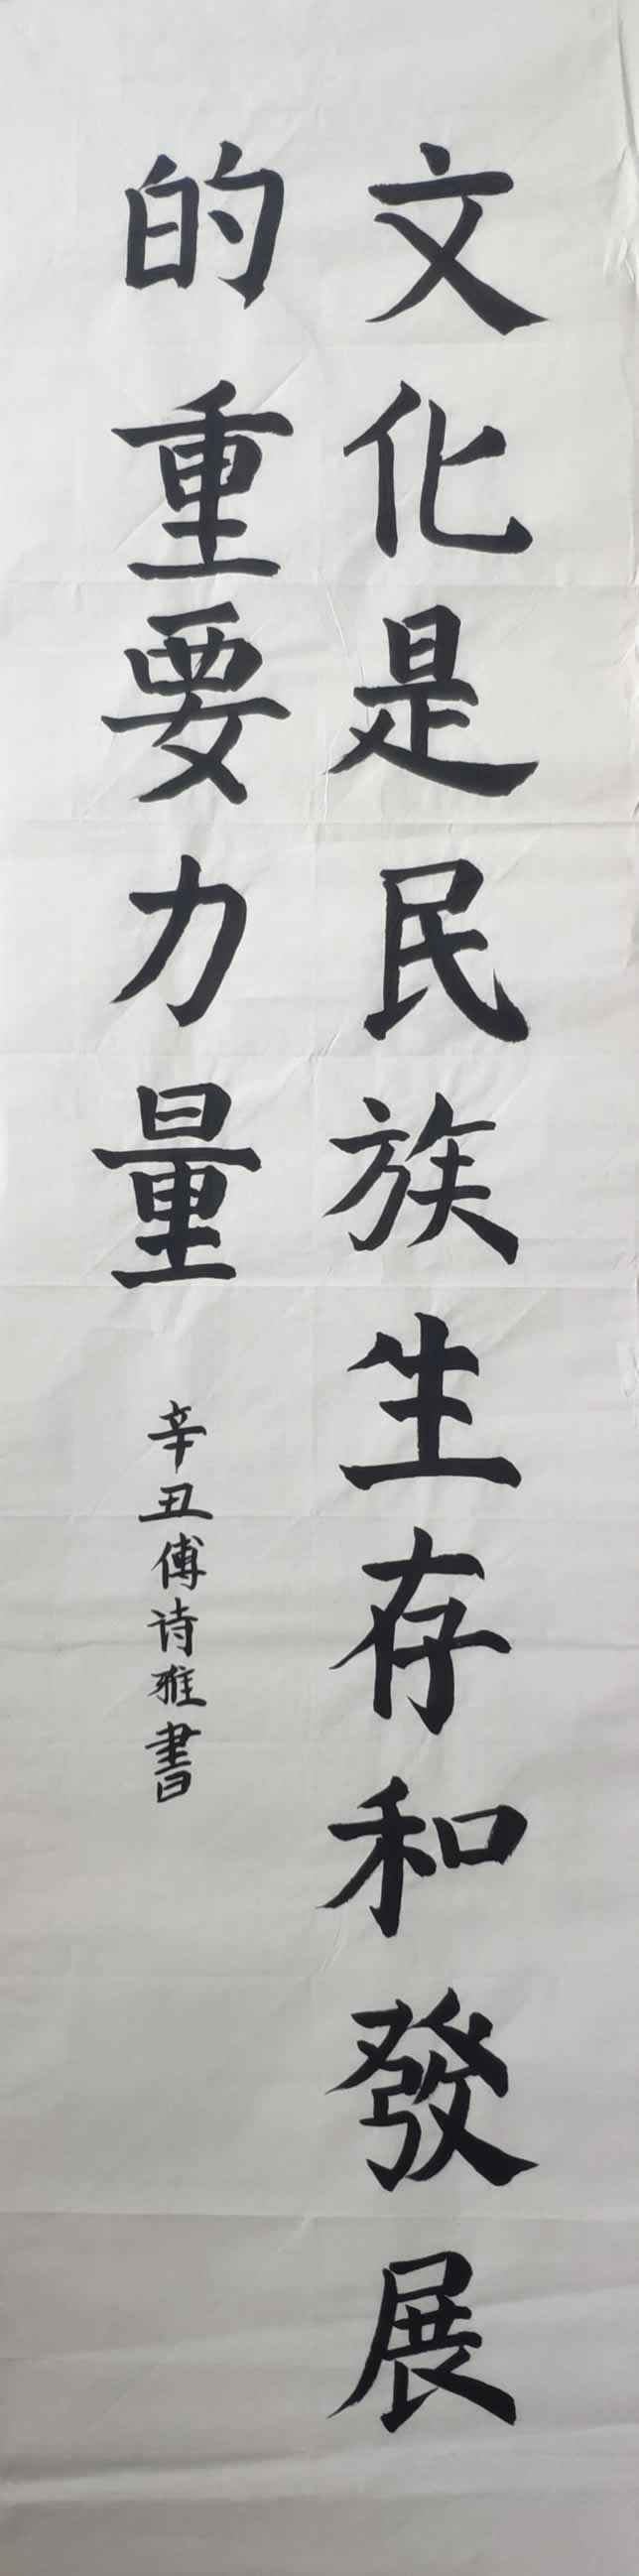 文化是民族生存和發展
的重要力量
辛丑傅诗雅書